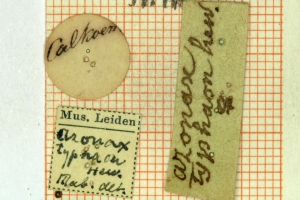 Calkoen
Mus. Leiden
aronax
typhaon
Hew.
aronax
typhaon hew.